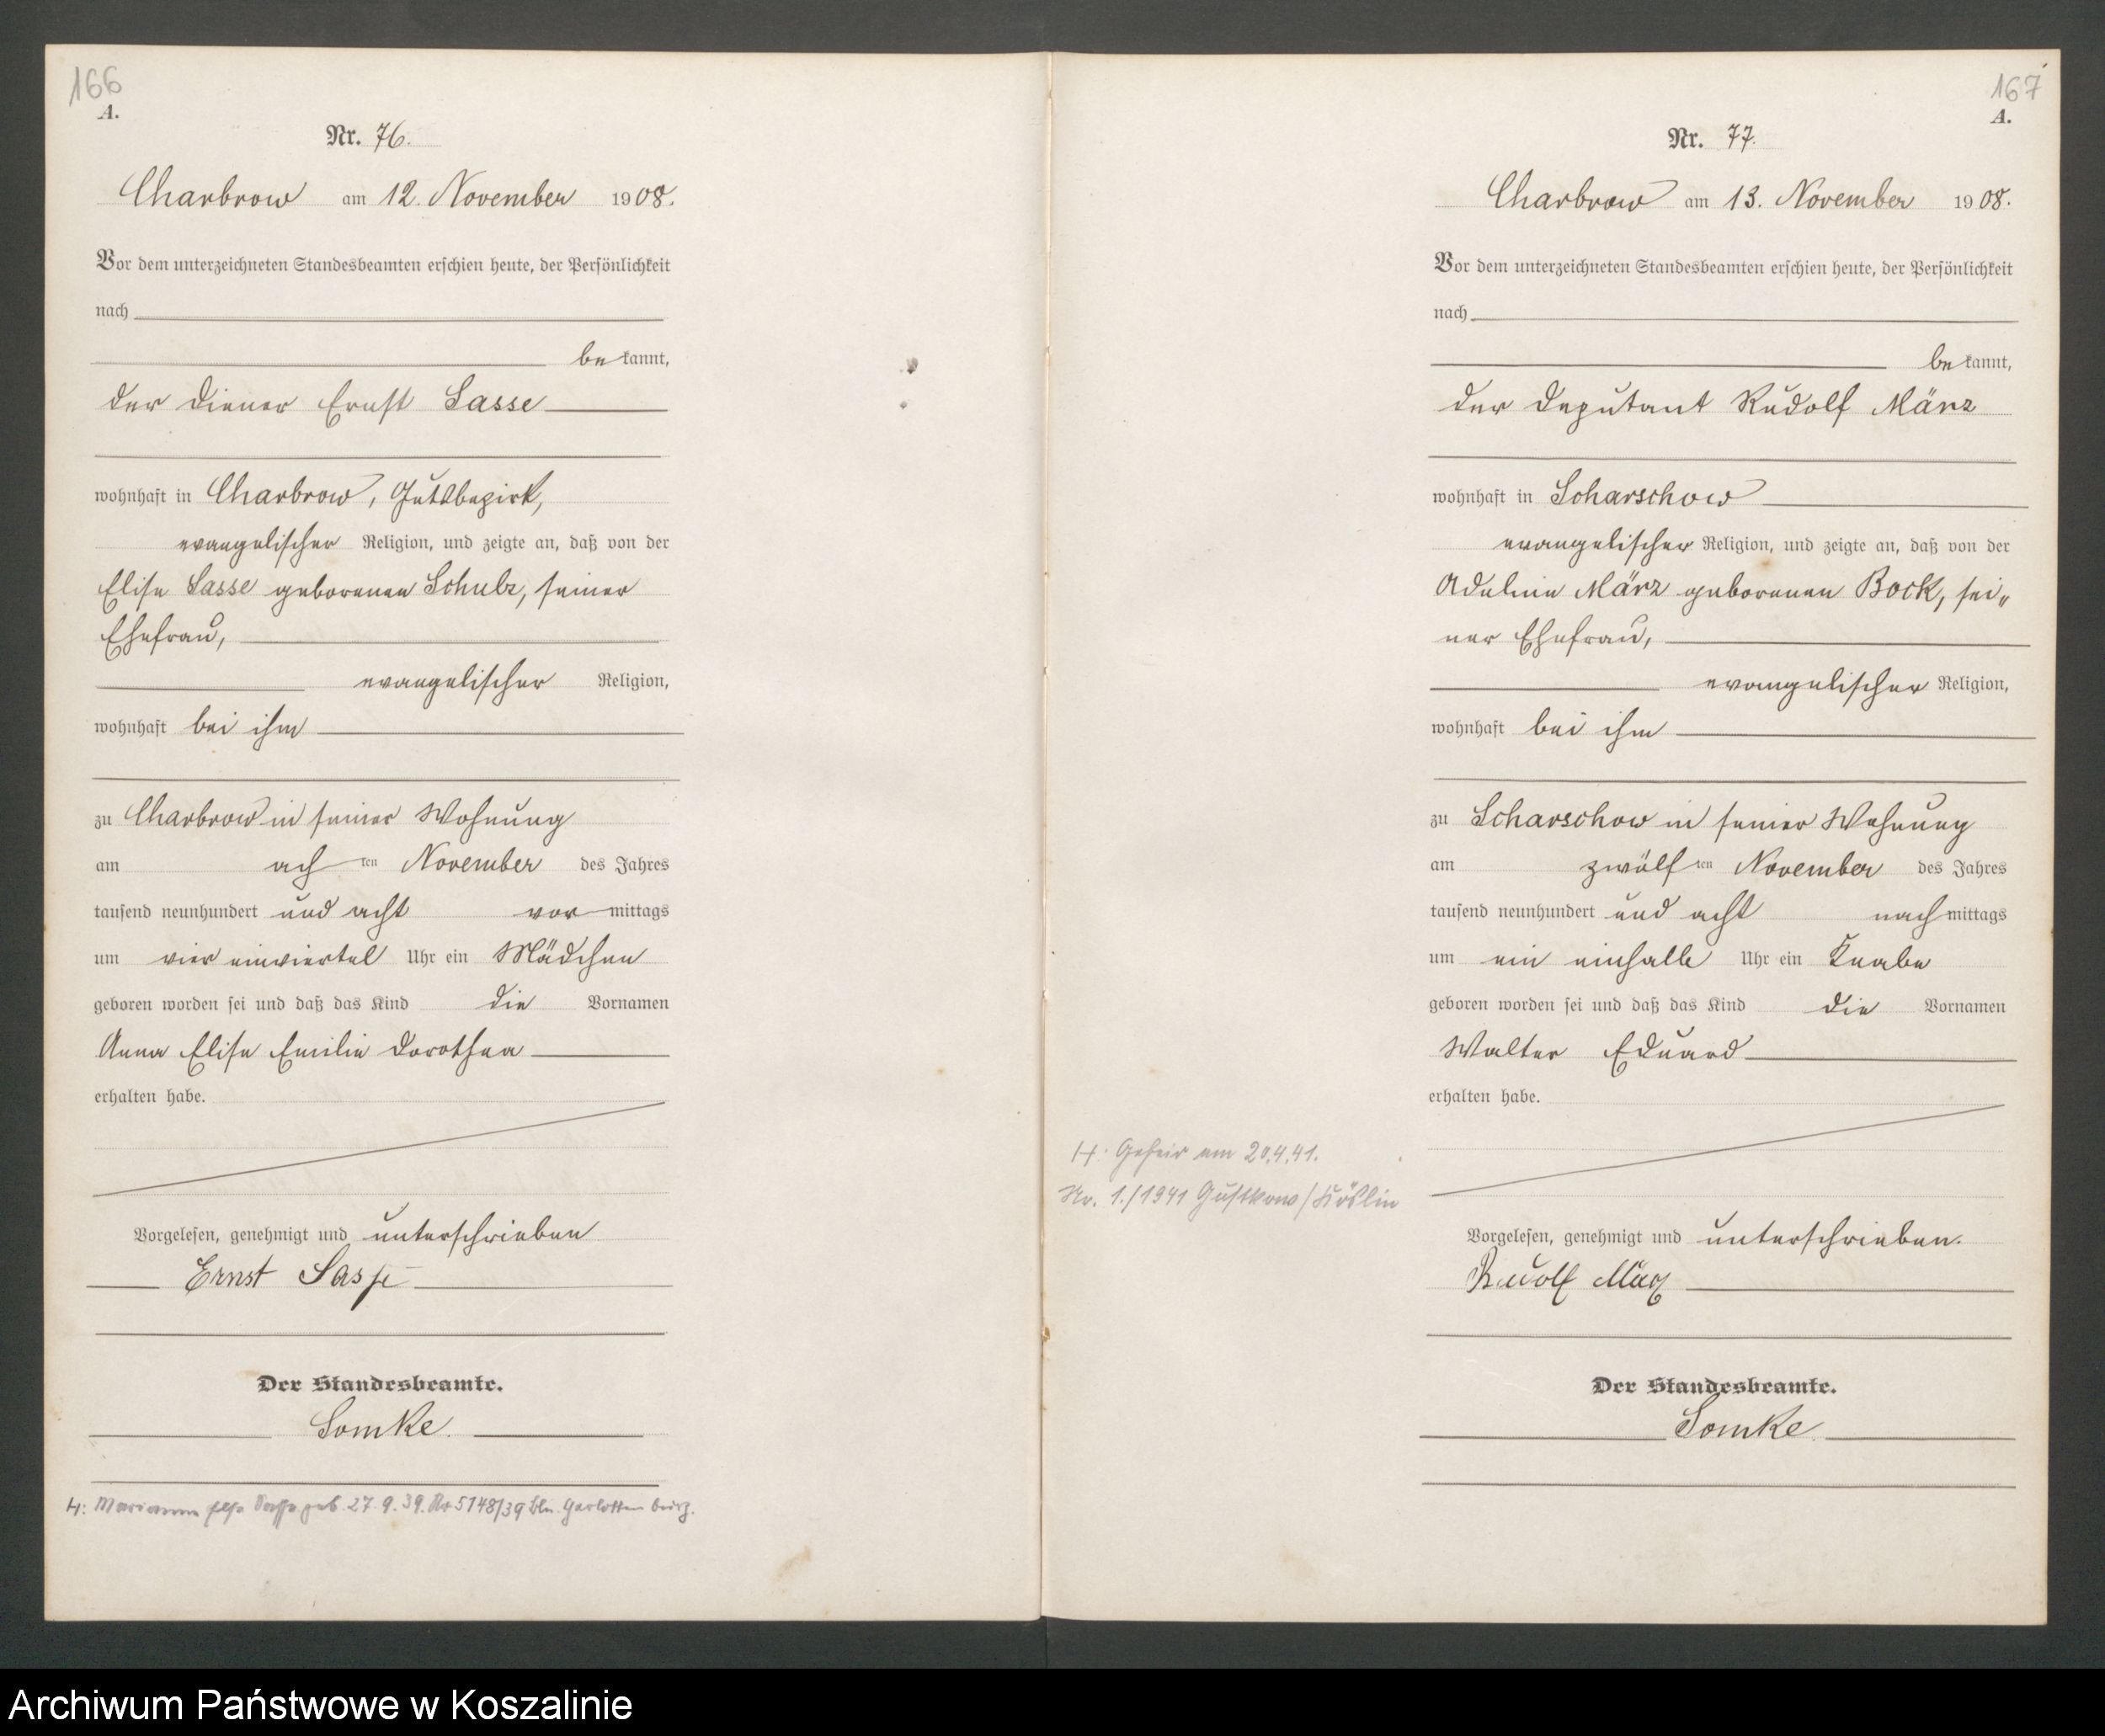 166
A.
Nr. 76.
Charbrow am 12. November 1908.
Vor dem unterzeichneten Standesbeamten erschien heute, der Persönlichkeit
nach
be kannt,
der Diener Ernst Sasse
wohnhaft in Charbrow, Gutsbezirk,
evangelischer Religion, und zeigte an, daß von der
Elise Sasse geborenen Schulz, seiner
Ehefrau,
evangelischer Religion,
wohnhaft bei ihm
zu Charbrow in seiner Wohnung
am ach ten November des Jahres
tausend neunhundert und acht vor mittags
um vier einviertel Uhr ein Mädchen
geboren worden sei und daß das Kind die Vornamen
Anna Elise Emilie Dorothea
erhalten habe.
Vorgelesen, genehmigt und unterschrieben
Ernst Sasse
Der Standesbeamte.
Somke.
H: Marianne Sasse geb. 27.9.39. Nr 5148/39 Bln.
167
A.
Nr. 77.
Charbrow am 13. November 1908.
Vor dem unterzeichneten Standesbeamten erschien heute, der Persönlichkeit
nach
be kannt,
der Deputant Rudolf März
wohnhaft in Scharschow
evangelischer Religion, und zeigte an, daß von der
Adeline März geborenen Bock, sei„
ner Ehefrau,
evangelischer Religion,
wohnhaft bei ihm
zu Scharschow in seiner Wohnung
am zwölf ten November des Jahres
tausend neunhundert und acht nach mittags
um ein einhalb Uhr ein Knabe
geboren worden sei und daß das Kind die Vornamen
Walter Eduard
erhalten habe.
H: Geheir am 20.4.41.
Nr. 1./1941 /Köslin
Vorgelesen, genehmigt und unterschrieben.
Rudolf März
Der Standesbeamte.
Somke.
Archiwum Państwowe w Koszalinie